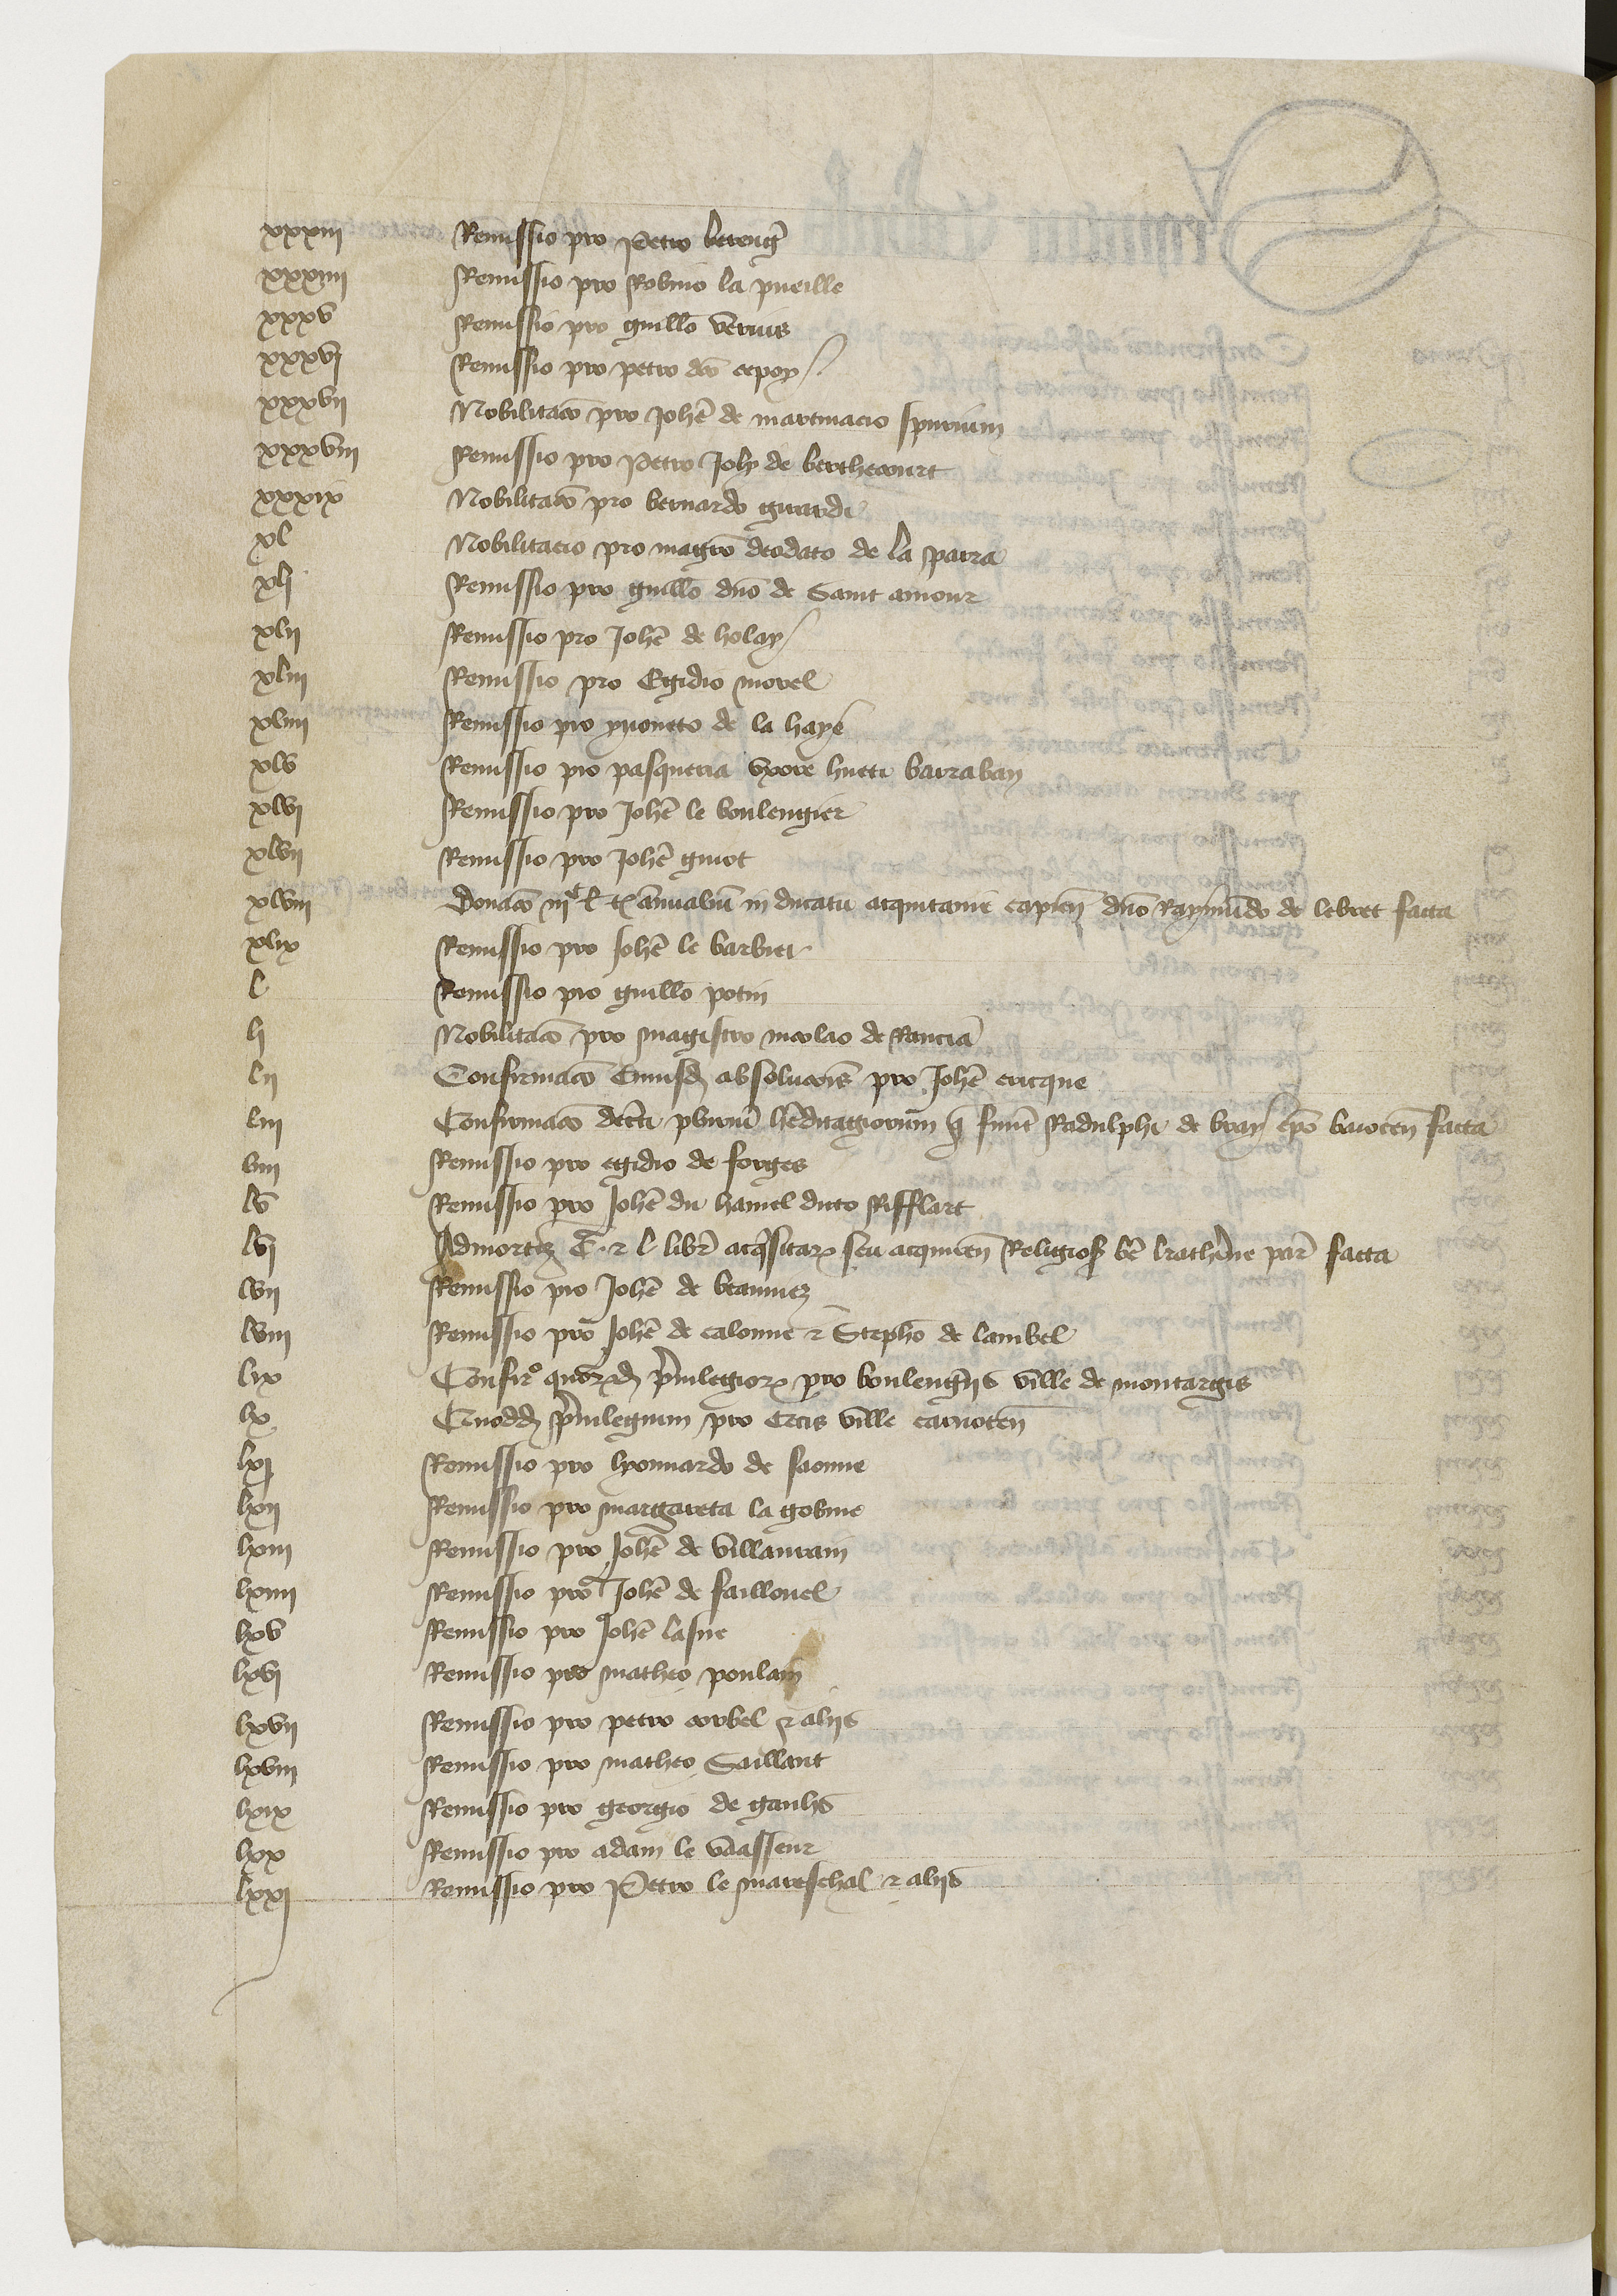 xxxiii Remissio pro Petro bereng̃
xxxiiii Remissio pro Robino la pueille
xxxv Remissio pro guillo̅
xxxvj Remissio pro petro dco̅ cepoy
xxxvii Nobilitaco̅ pro Joh̅e de martinacio spurium
xxxviii Remissio pro Petro Joly de berthecourt
xxxix Nobilitaco̅ pro bernardo girardi
xl Nobilitacio pro magr̅o deodato de la parra
xlj Remissio pro guillo̅ dn̅o de Saint amour
xlii Remissio pro Joh̅e de holay
xliii Remissio pro Egidio morel
xliiii Remissio pro yuoneto de la haye
xlv Remissio pro pasqueria vxore hueti barraban
xlvj Remissio pro Joh̅e le boulengier
xlvii Remissio pro Joh̅e guiot
xlviii Donaco̅ annualiu̅ in ducatu acquitanie capien̅ dn̅o Raymu̅do de lebret facta
xlix Remissio pro Joh̅e le barbier
l Remissio pro guillo̅ potin
lj Nobilitaco̅ pro magistro nicolao de Rancia
lii Confirmaco̅ absoluco̅is pro Joh̅e
liii Confirmaco̅ h̅editagioru̅m fuu̅t Radulphi de bray ep̅o baiocen̅ facta
liiii Remissio pro egidio de forges
lv Remissio pro Joh̅e du hamel dicto Rifflart
lvj Admortiz̅ C. ⁊ l libr̅ acq̅sitaꝝ seu acquiren̅ Religios̅ be̅ kather̅ine par̅ facta
lvii Remissio pro Joh̅e de beaumez
lviii Remissio pro Joh̅e de calonne ⁊ Stepho̅ de lambel
lix Confir̅o quorꝝd̅ p̅uilegioꝝ pro boulengr̅iis ville de montargis
lx Quodd̅ p̅uilegium pro ville carnoten̅
lxj Remissio pro lyonnardo de saonne
lxii Remissio pro margareta la gobine
lxiii Remissio pro Joh̅e de villaurain
lxiiii Remissio pro Joh̅e de faillouel
lxv Remissio pro Joh̅e lasne
lxvj Remissio pro matheo poulain
lxvii Remissio pro petro corbel ⁊ aliis
lxviii Remissio pro matheo Saillant
lxix Remissio pro georgio de
lxx Remissio pro adam le vasseur
lxxj Remissio pro Petro le mareschal ⁊ aliis